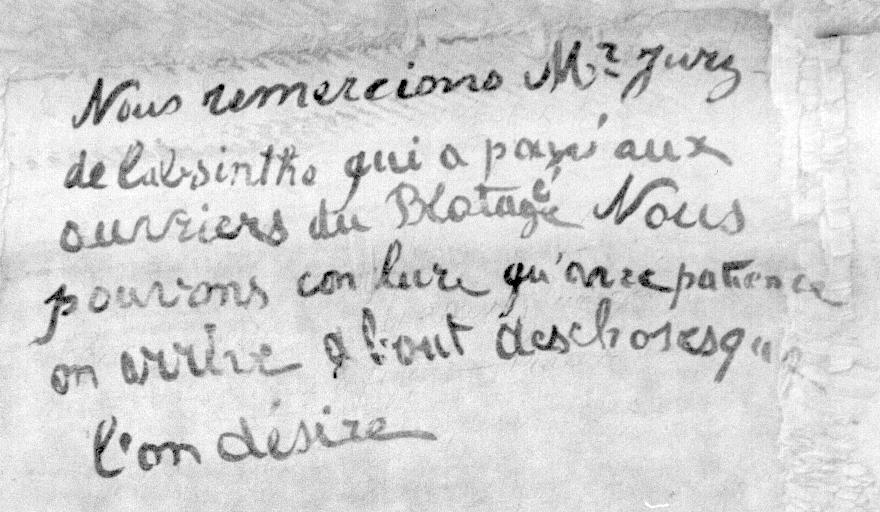 Nous remercions Mr Jury
de labsinthe qui a payé aux
ouvriers du Blotage Nous
pouvons conlure qu'avec patience
on arrive a bout des choses que
l'on désire